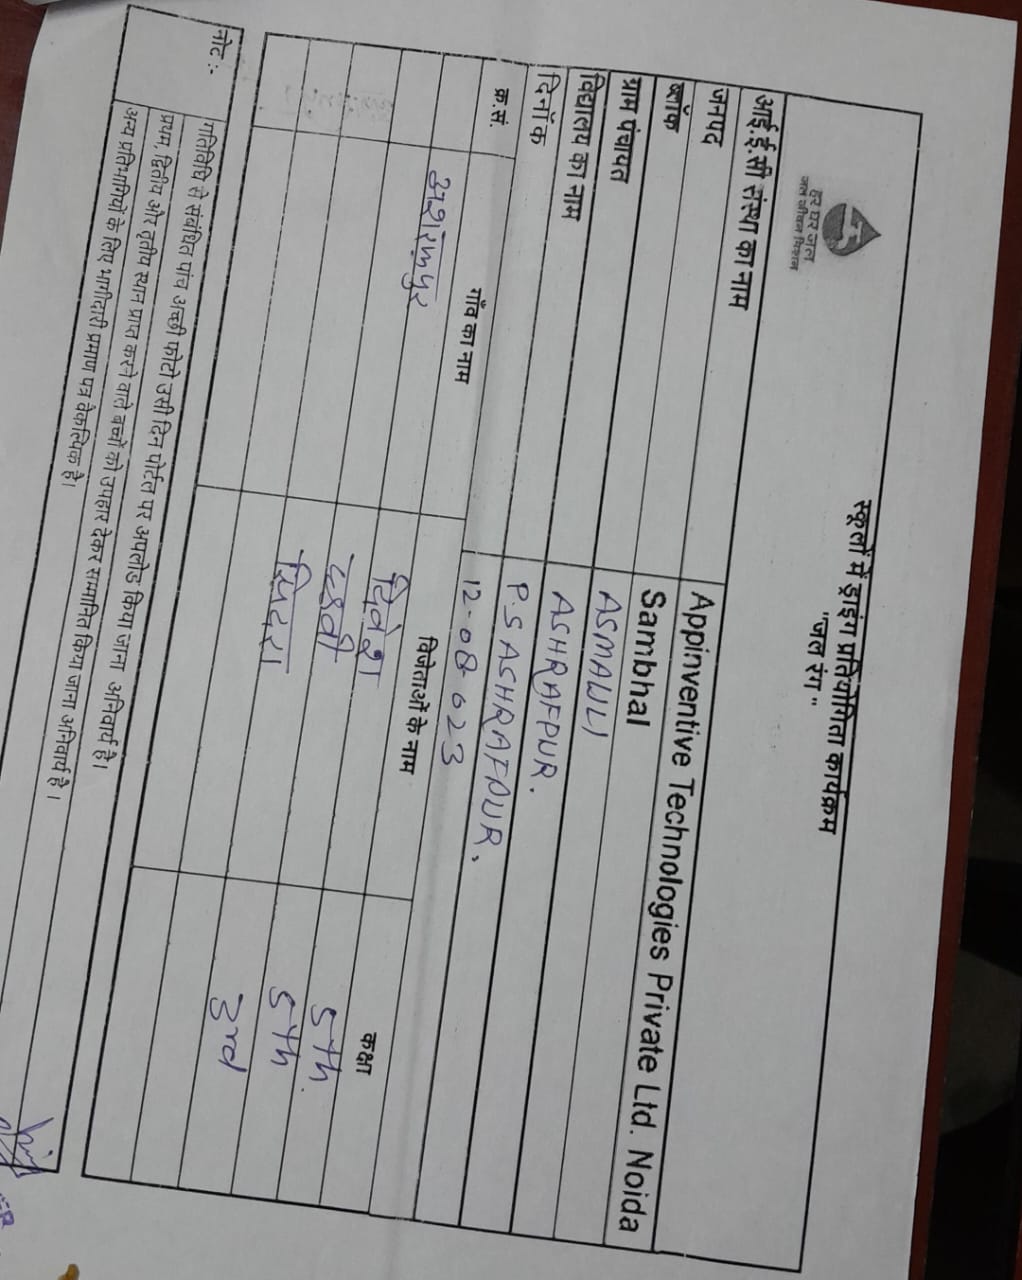 स्कूलों में ड्राइंग प्रतियोगिता कार्यक्रम
"जल रंग"
हर घर जल
जल जीवन मिशन
आई.ई.सी संस्था का नाम Appinventive Technologies Private Ltd. Noida
जनपद Sambhal
ब्लॉक ASMAULI
ग्राम पंचायत ASHRAFPUR.
विद्यालय का नाम P.S ASHRAFPUR.
दिनाँक 12-08-023
क्र.सं. गाँव का नाम विजेताओं के नाम कक्षा
अशरफपुर दिवेश 5th.
5th
3rd
नोट:- गतिविधि से संबंधित पांच अच्छी फोटो उसी दिन पोर्टल पर अपलोड किया जाना अनिवार्य है।
प्रथम, द्वितीय और तृतीय स्थान प्राप्त करने वाले बच्चों को उपहार देकर सम्मानित किया जाना अनिवार्य है।
अन्य प्रतिभागियों के लिए भागीदारी प्रमाण पत्र वैकल्पिक है।